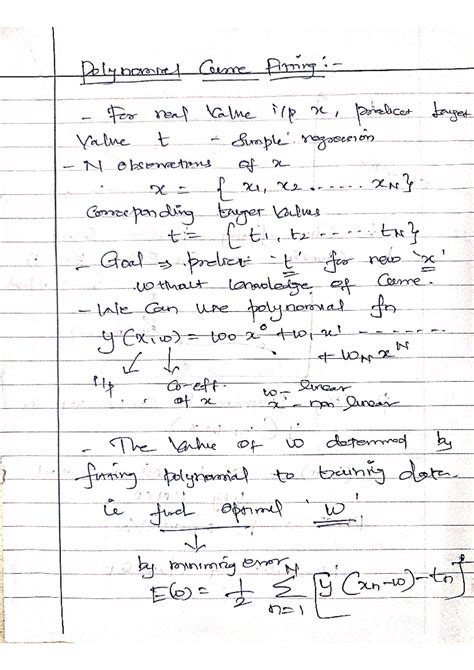 Polynomial Curve Fitting :-
- For real value i/p x, predict target
value t - Simple regression
- N observations of x
x = { x1, x2 ...... xN}
Corresponding target values
t = { t1, t2 ..... tN}
- Goal ⇒ predict 't' for new 'x'
without knowledge of curve.
- We can use polynomial fn
y(x,w) = w0 x⁰ + w1 x¹ - - - - - - -
+ wN x^N
i/p Co-eff. w - linear
of x x - non linear
- The value of w determined by
fitting polynomial to training data
ie find optimal 'w'
by minimizing error
E(w) = 1/2 N∑n=1 [y (xn-w) - tn]²